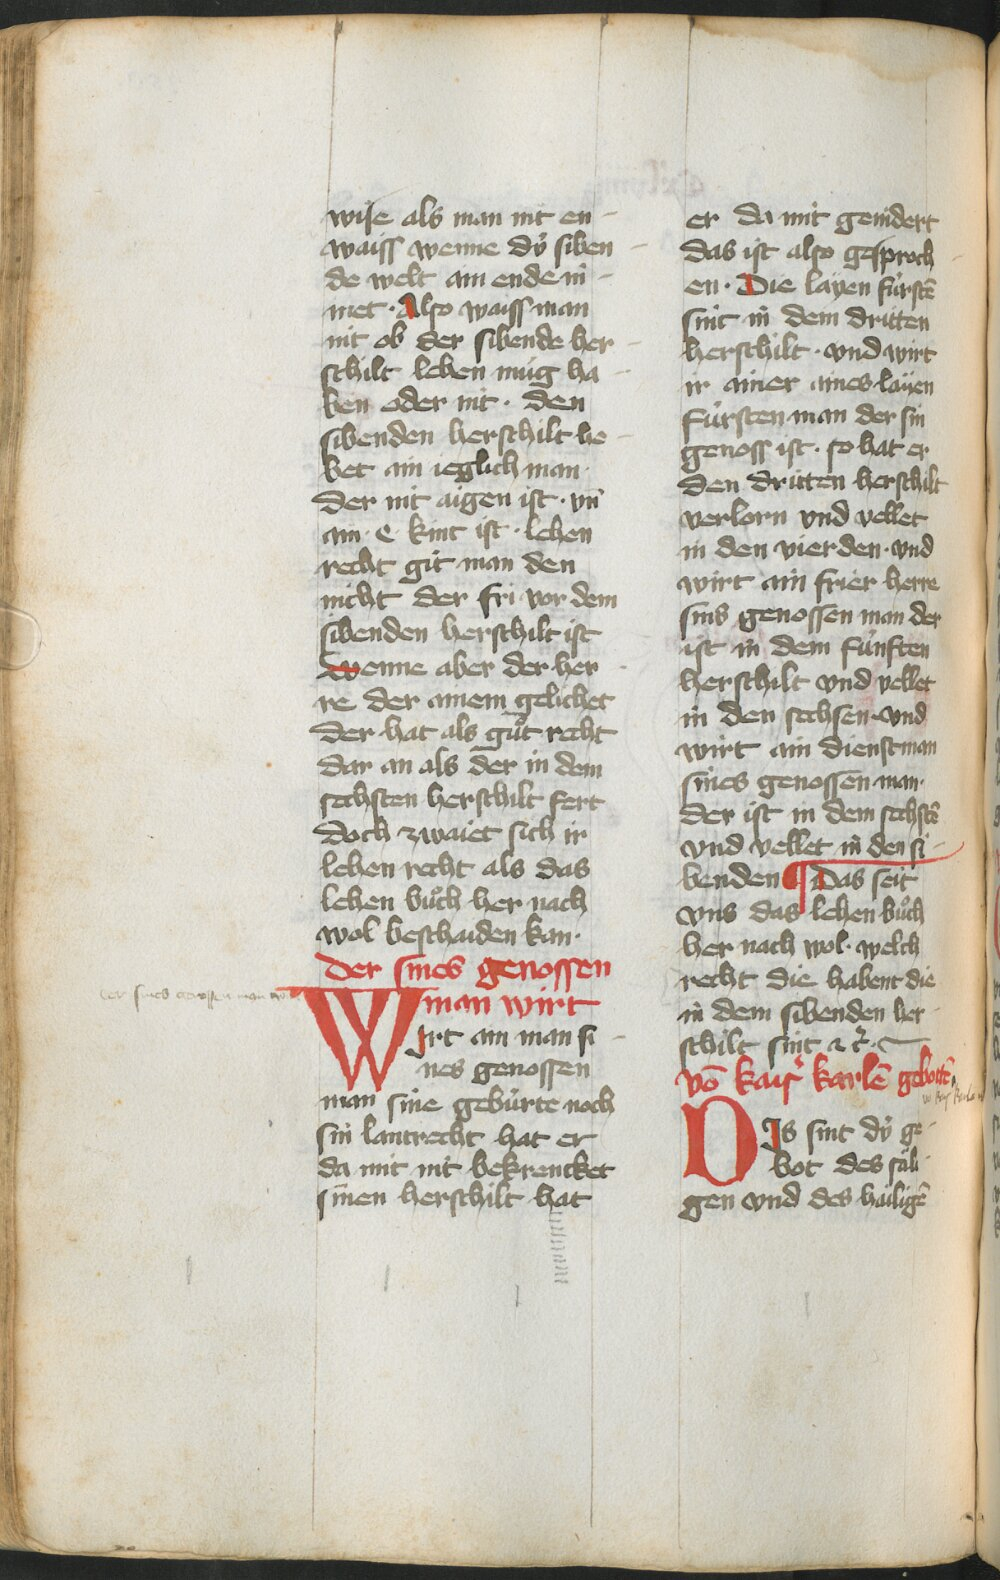 wise als man nit en-
waiss wenne dÿ siben
de welt am ende ni-
met · Also waiss man
nit ob der sibende her-
schilt lehen műg ha-
ben oder nit · den
sibenden herschilt he-
bet ain ieglich man
der nit aigen ist · vn̄
ain · e kint ist · lehen
recht git man den
nicht der fri vor dem
sibenden herschilt ist
wenne aber der her-
re der ainem gelichet
der hat als gůt recht
dar an als der in dem
sechsten herschilt fert
doch zwaiet sich ir
lehen recht als das
lehen bůch her nach
wol beschaiden kan·
der sines genossen
man wirt
WIrt ain man si-
nes genossen
man sine gebürte noch
sin lantrecht hat er
da mit nit bekrencket
sinen herschilt hat
der sines genossen man wirt
er da mit genidert
das ist also gesproch-
en · Die layen fürstē
sint in dem dritten
herschilt · vnd wirt
ir ainer aines layen
fürsten man der sin
genoss ist · so hat er
den dritten herschilt
verlorn vnd vellet
in den vierden · vnd
wirt ain frier herre
sins genossen man der
ist in dem fünften
herschilt vnd vellet
in den sechsen · vnd
wirt ain dienstman
sines genossen man·
der ist in dem sechstē
vnd vellet in den si-
benden ¶ Das seit
vns das lehen bůch
her nach wol · welch
recht die habent die
in dem sibenden her-
schilt sint ⁊ c̄ ·
vō kaiſ͛ karlē gebottē
DIs sint dÿ ge-
bot des säli-
gen vnd des hailigē